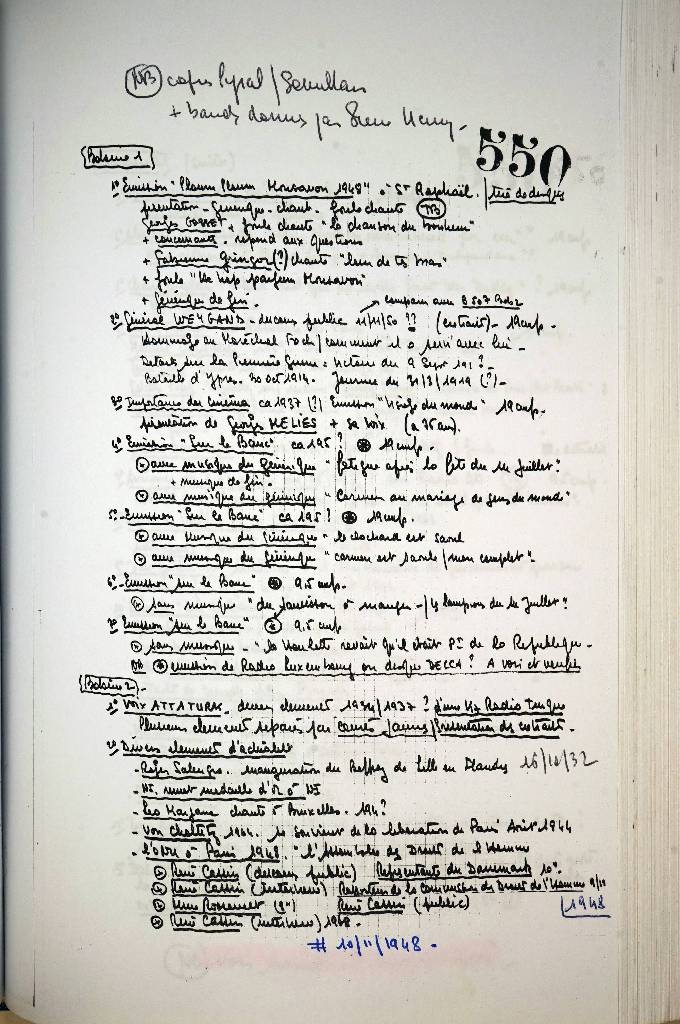 NB copies Pyral /
+ bandes données par
550
Bobine 1
1° Emission "Plaum Plaum Monsavon 1948" à St Raphaël. / tiré de disques
présentation - générique - chant. foule chante NB
Georges GOSSET + foule chante "la chanson du bonheur"
+ concurrents répond aux questions
+ Fabienne (?) chante "dans de tes bras"
+ foule "Hip hip parfum Monsavon"
+ générique de fin.
→ comparer avec B 507 Bob2
2° Général WEYGAND - discours public 11/11/50 ?? (extrait) - 19cmp.
Hommage au Maréchal Foch / comment il a servi avec lui -
Détails sur la Première Guerre : victoire du 9 Sept 191? -
Bataille d'Ypres. 30 oct 1914. Journée du 21/3/1919 (?) -
3° Importance du Cinéma ca 1937 (?) Emission "Visage du monde" 19cmp.
présentation de Georges MELIES + sa voix (à 76 ans).
4° Emission "Sur le Banc" ca 195? 19 cmp.
avec musique du générique "fatigue après la fête du 14 Juillet".
+ musique de fin.
avec musique du générique "Carmen au mariage de gens du monde"
5° Emission "Sur le Banc" ca 195? 19cmp.
avec musique du générique "le clochard est saoul
avec musique du générique "Carmen est saoule / mon complet".
6° Emission "sur le Banc" 9,5 cmp.
sans musique "du saucisson à manger - / 4 lampions du 14 Juillet".
7° Emission "sur le Banc" 9,5 cmp
sans musique - "la Houlette revait qu'il était Pt de la République.
NB émission de Radio Luxembourg ou disque DECCA? A voir et vérifier
Bobine 2 -
1° Voix ATTATURK - divers élément 1934/1937 ? d'une K7 Radio Turque
Plusieurs élément séparés par courte jaunes / Présentation des extraits.
2° Divers éléments d'actualité
- Roger Salengro. inauguration du Beffroi de Lille en Flandres 16/10/32
- Id. remet médaille d'or à Id
- Léo Marjane chante à Bruxelles. 194?
- Von Choltitz 1964. se souvient de la libération de Paris Août 1944
- L'ONU à Paris 1948. "l'Assemblée des Droits de l'Homme
René Cassin (discours public) Représentante du Danemark 10".
René Cassin (interview) Rapporteur de la Commission des Droits de l'Homme 9/11
Mme Roosevelt (9") René Cassin (public) 1948
René Cassin (interview) 1968.
# 10/11/1948 -